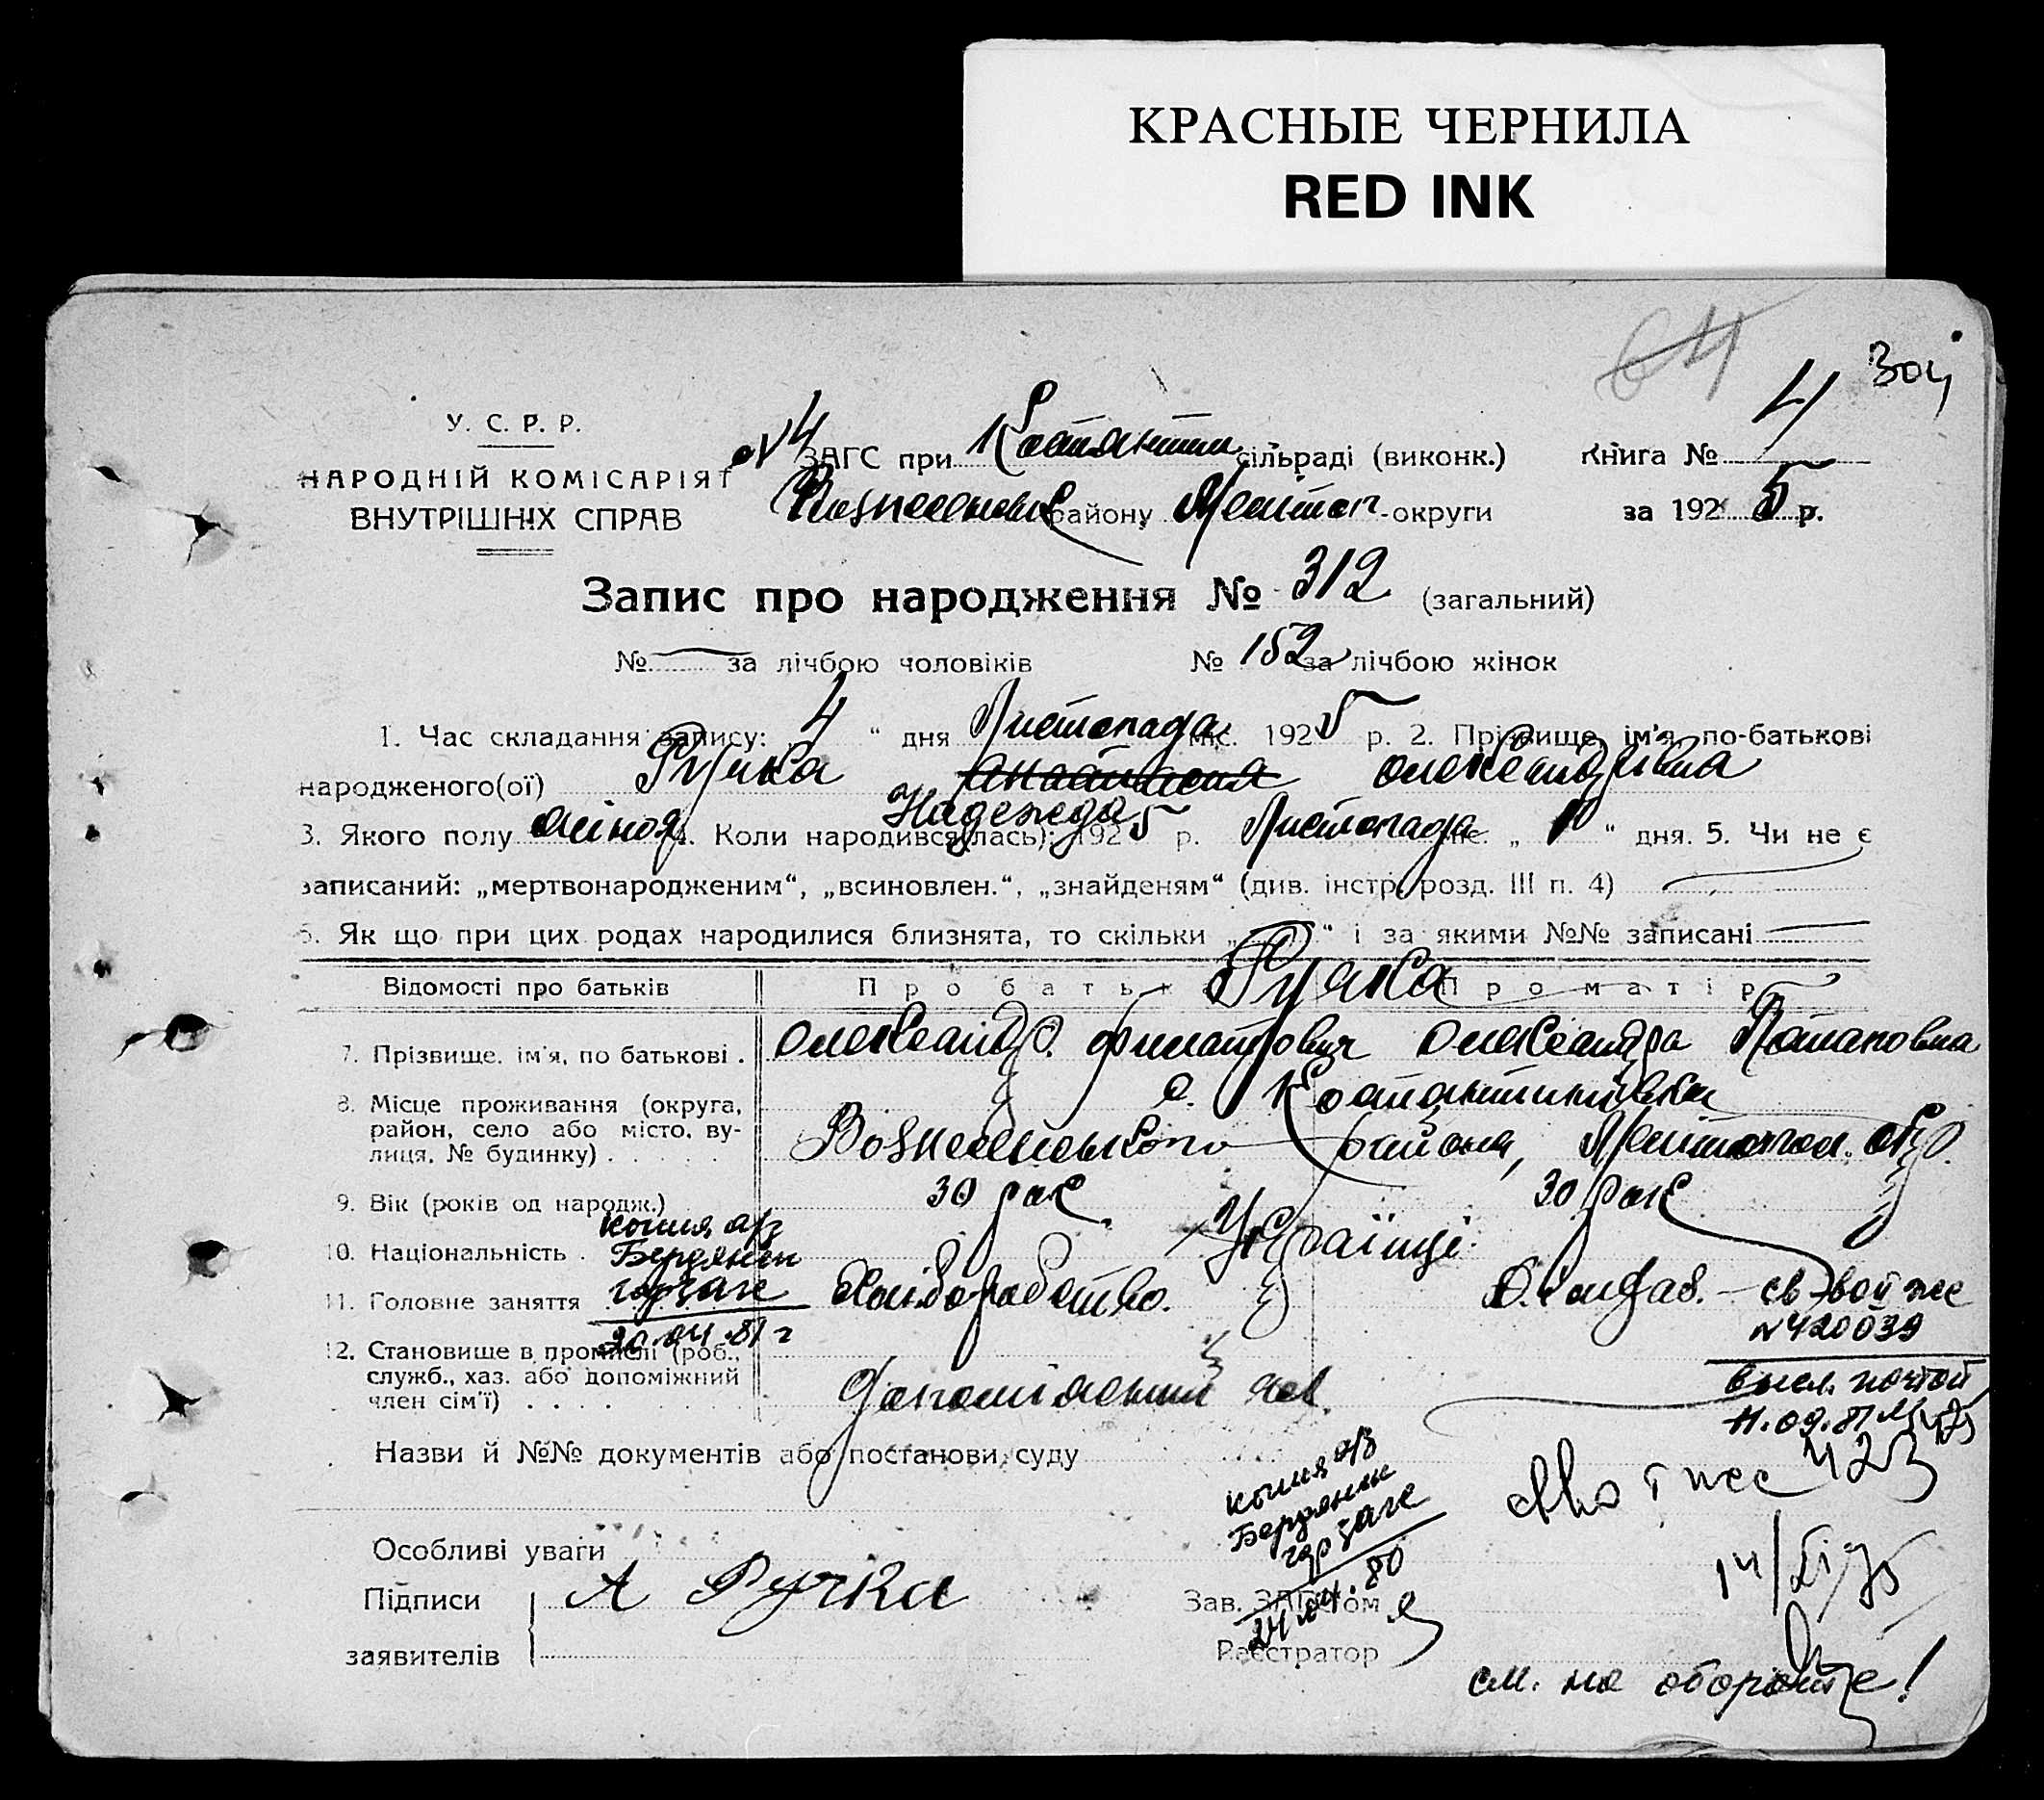 КРАСНЫЕ ЧЕРНИЛА
RED INK
64
304
У. С. Р. Р.
НАРОДНІЙ КОМІСАРІЯТ
ВНУТРІШНІХ СПРАВ
№4 ЗАГС при Костянтин сільраді (виконк.) Книга № 4
Вознесенськ району Мелітоп округи за 1925 р.
Запис про народження № 312 (загальний)
№ — за лічбою чоловіків № 152 за лічбою жінок
1. Час складання запису: 4 " дня Листопада міс. 1925 р. 2. Прізвище, ім'я, по-батькові
народженого(ої) Ручка Анастасия Олександрівна
Надежда
3. Якого полу жіноч. 4. Коли народився(лась): 1925 р. Листопада міс. „ “ дня. 5. Чи не є
записаний: „мертвонародженим“, „всиновлен.“, „знайденям“ (див. інстр. розд. III п. 4) —
6. Як що при цих родах народилися близнята, то скільки „ “ і за якими №№ записані —
Відомості про батьків Про батька Про матір
Ручка
7. Прізвище, ім'я, по батькові . Олександр. Филатович Олександра Потаповна
8. Місце проживання (округа, район, село або місто, ву-
лиця, № будинку) . . . . . с. Костянтинівка
Вознесенського района, Мелітопол. окр.
9. Вік (років од народж.) 30 рок. 30 рок
10. Національність . Українці
копия а/з
Бердянск
горзагс
20.04.81 г
11. Головне заняття Хліборобство. — св-вой же
№420039
12. Становище в промислі (роб.,
служб., хаз. або допоміжний
член сім'ї) . . . . Допоміжний чл. —
высл. почтой
11.09.81
Назви й №№ документів або постанови суду
копия а/з
Бердянск
горзагс
24.04.80
423
14/XI 75
Особливі уваги
Підписи
заявителів
А Ручка
Зав. ЗАГСом
Реєстратор
см. на обороте!